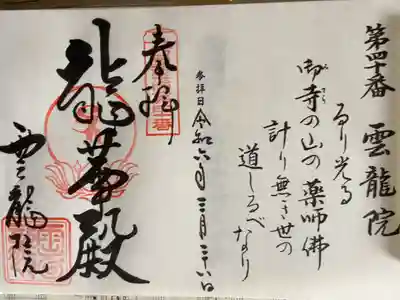 第四十番 雲龍院
るり光る
御寺の山の薬師佛
計り無き世の
道しるべなり
参拝日 令和六年
奉拝
龍華殿
雲龍院